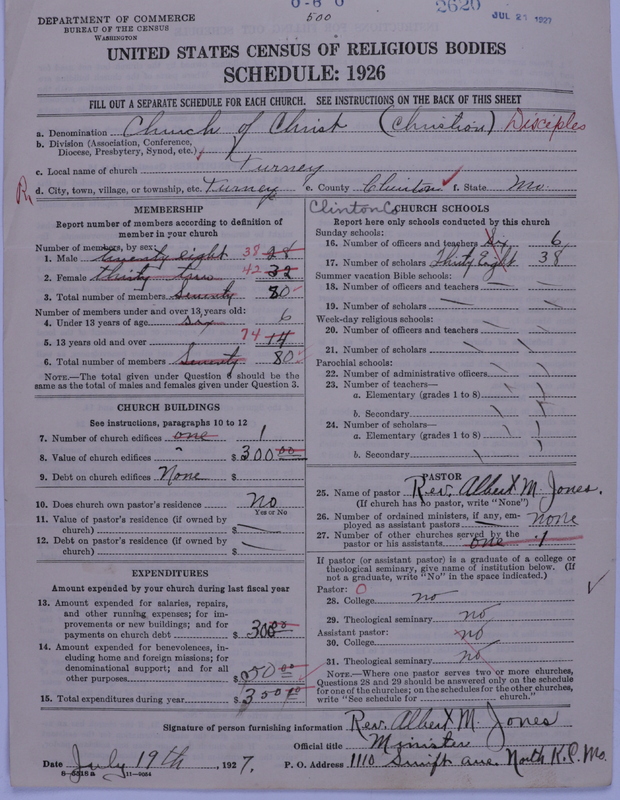 500
2620
JUL 21 1927
DEPARTMENT OF COMMERCE
BUREAU OF THE CENSUS
WASHINGTON
UNITED STATES CENSUS OF RELIGIOUS BODIES
SCHEDULE: 1926
FILL OUT A SEPARATE SCHEDULE FOR EACH CHURCH. SEE INSTRUCTIONS ON THE BACK OF THIS SHEET
a. Denomination Church of Christ (Christian) Disciples
b. Division (Association, Conference, Diocese, Presbytery, Synod, etc.)
c. Local name of church Turney
d. City, town, village, or township, etc. Turney e. County Clinton f. State Mo.
MEMBERSHIP
Report number of members according to definition of member in your church
Number of members, by sex:
1. Male twenty eight 38 28
2. Female thirty two 42 32
3. Total number of members seventy 80
Number of members under and over 13 years old:
4. Under 13 years of age six 6
5. 13 years old and over 74 14
6. Total number of members Seventy 80
NOTE.—The total given under Question 6 should be the same as the total of males and females given under Question 3.
CHURCH BUILDINGS
See instructions, paragraphs 10 to 12
7. Number of church edifices one 1
8. Value of church edifices " $ 300 00
9. Debt on church edifices None $
10. Does church own pastor's residence no
Yes or No
11. Value of pastor's residence (if owned by church) $
12. Debt on pastor's residence (if owned by church) $
EXPENDITURES
Amount expended by your church during last fiscal year
13. Amount expended for salaries, repairs, and other running expenses; for improvements or new buildings; and for payments on church debt $ 300 00
14. Amount expended for benevolences, including home and foreign missions; for denominational support; and for all other purposes $ 50 00
15. Total expenditures during year $ 350
Clinton Co
CHURCH SCHOOLS
Report here only schools conducted by this church
Sunday schools:
16. Number of officers and teachers Six 6
17. Number of scholars Thirty Eight 38
Summer vacation Bible schools:
18. Number of officers and teachers
19. Number of scholars
Week-day religious schools:
20. Number of officers and teachers
21. Number of scholars
Parochial schools:
22. Number of administrative officers
23. Number of teachers—
a. Elementary (grades 1 to 8)
b. Secondary
24. Number of scholars—
a. Elementary (grades 1 to 8)
b. Secondary
PASTOR
25. Name of pastor Rev. Albert M. Jones.
(If church has no pastor, write "None")
26. Number of ordained ministers, if any, employed as assistant pastors none
27. Number of other churches served by the pastor or his assistants one 1
If pastor (or assistant pastor) is a graduate of a college or theological seminary, give name of institution below. (If not a graduate, write "No" in the space indicated.)
Pastor: 0
28. College no
29. Theological seminary no
Assistant pastor:
30. College no
31. Theological seminary no
NOTE.—Where one pastor serves two or more churches, Questions 28 and 29 should be answered only on the schedule for one of the churches; on the schedules for the other churches, write "See schedule for church."
Signature of person furnishing information Rev. Albert M. Jones
Official title Minister
Date July 19th, 1927. P. O. Address 1110 Swift ave. North K.C. Mo.
8-5518a 11-9054